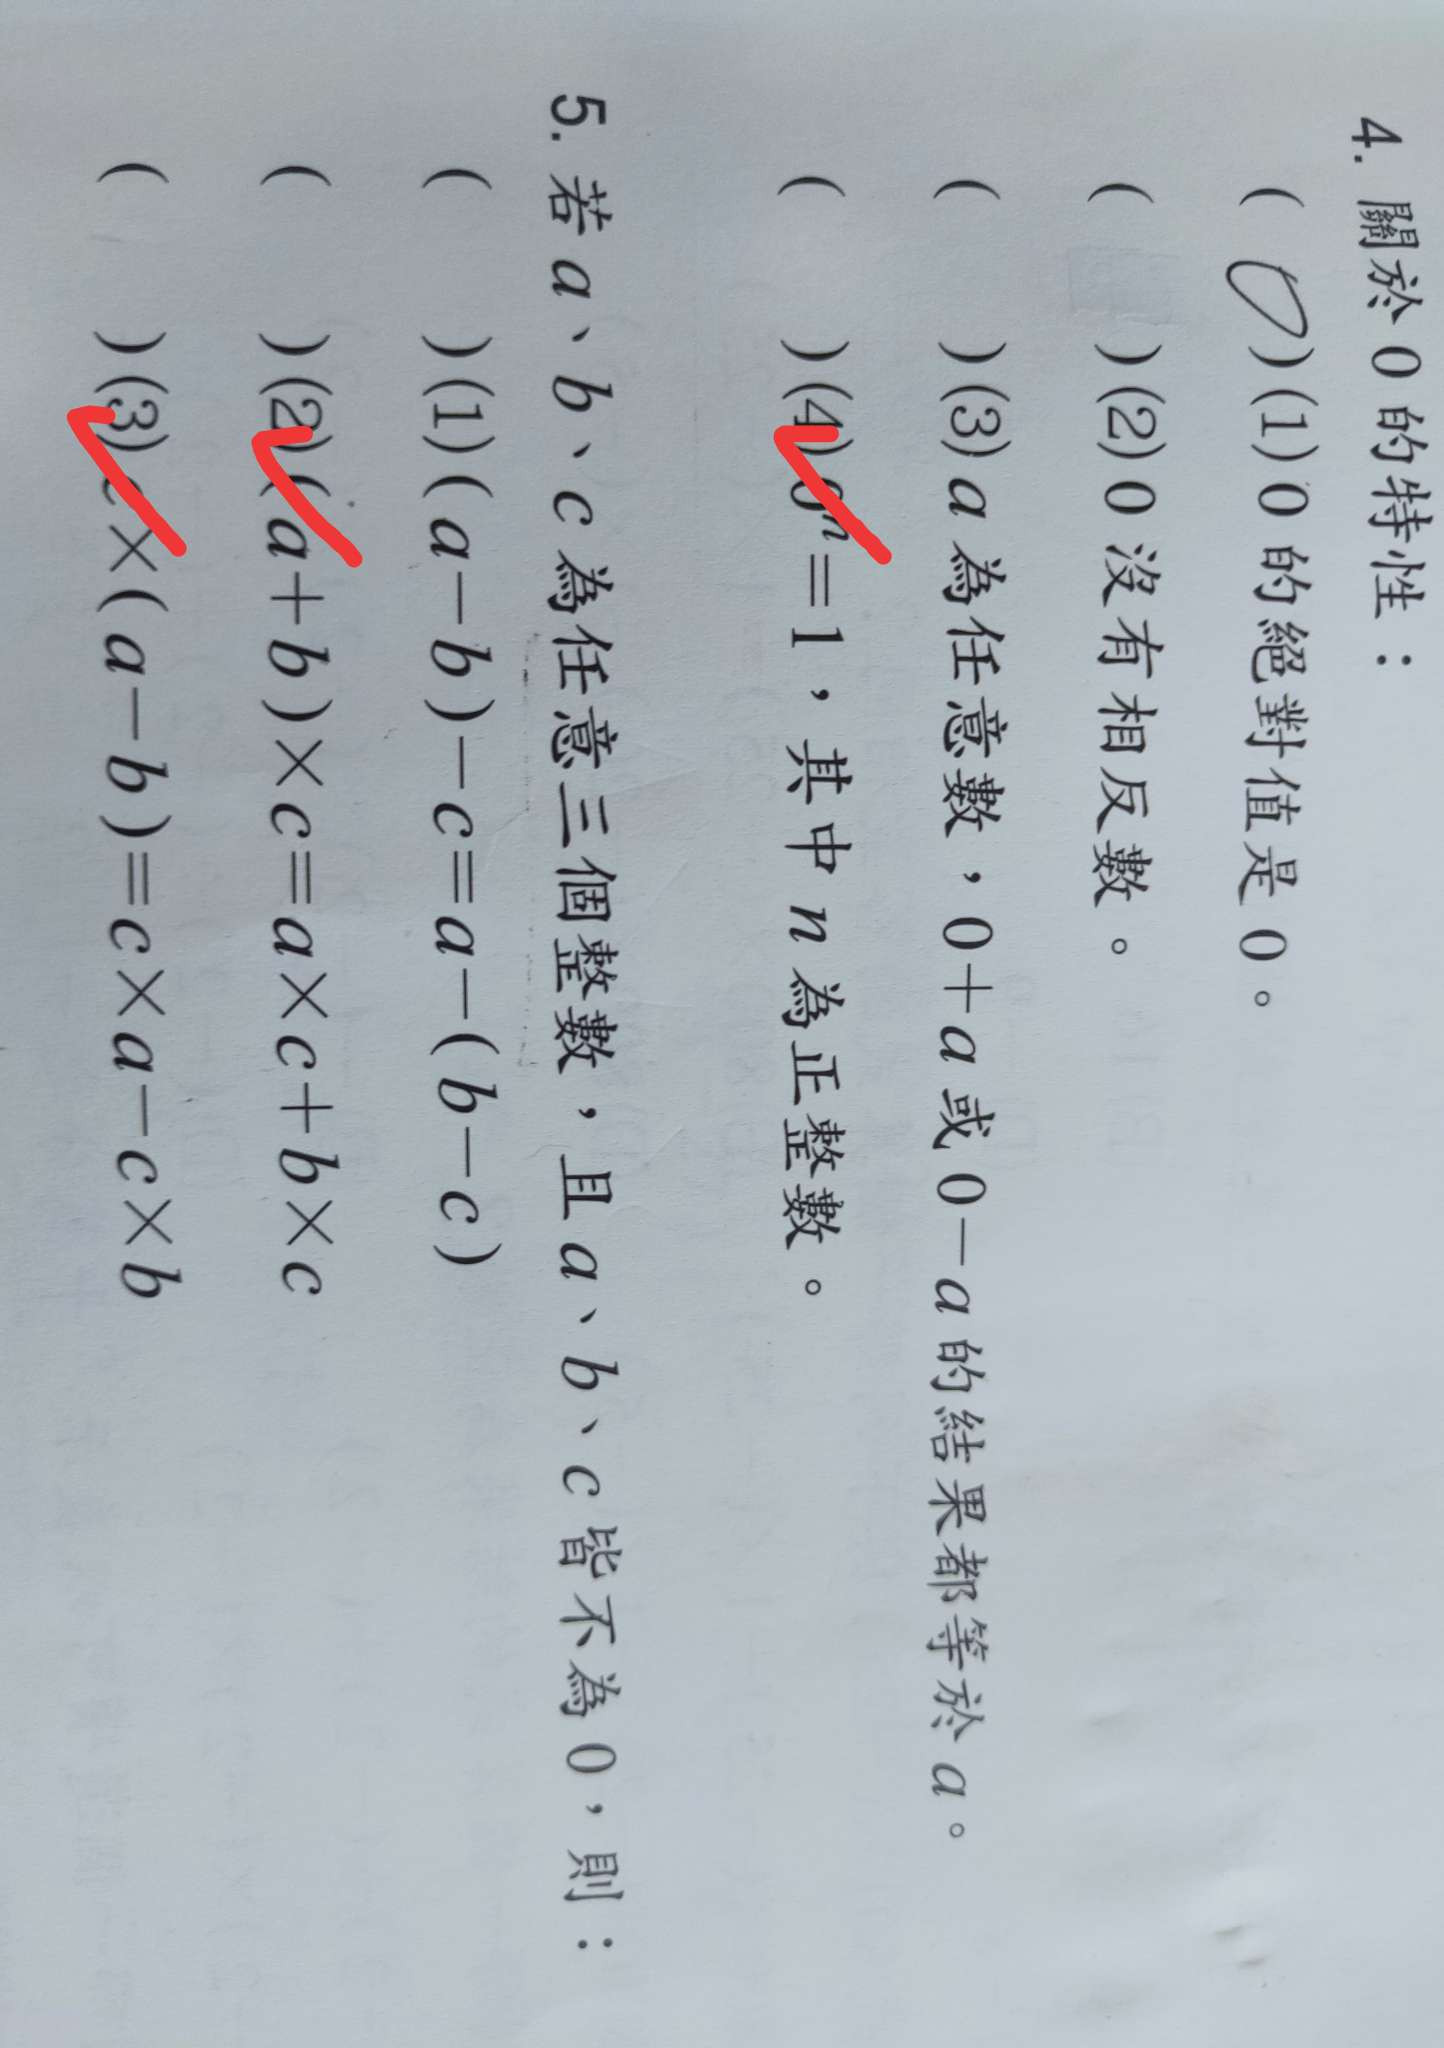 4. 關於 0 的特性：
(○)(1) 0 的絕對值是 0。
( )(2) 0 沒有相反數。
( )(3) a 為任意數，0+a 或 0-a 的結果都等於 a。
( )(4) 0ⁿ=1，其中 n 為正整數。
5. 若 a、b、c 為任意三個整數，且 a、b、c 皆不為 0，則：
( )(1) (a-b)-c=a-(b-c)
( )(2) (a+b)×c=a×c+b×c
( )(3) c×(a-b)=c×a-c×b